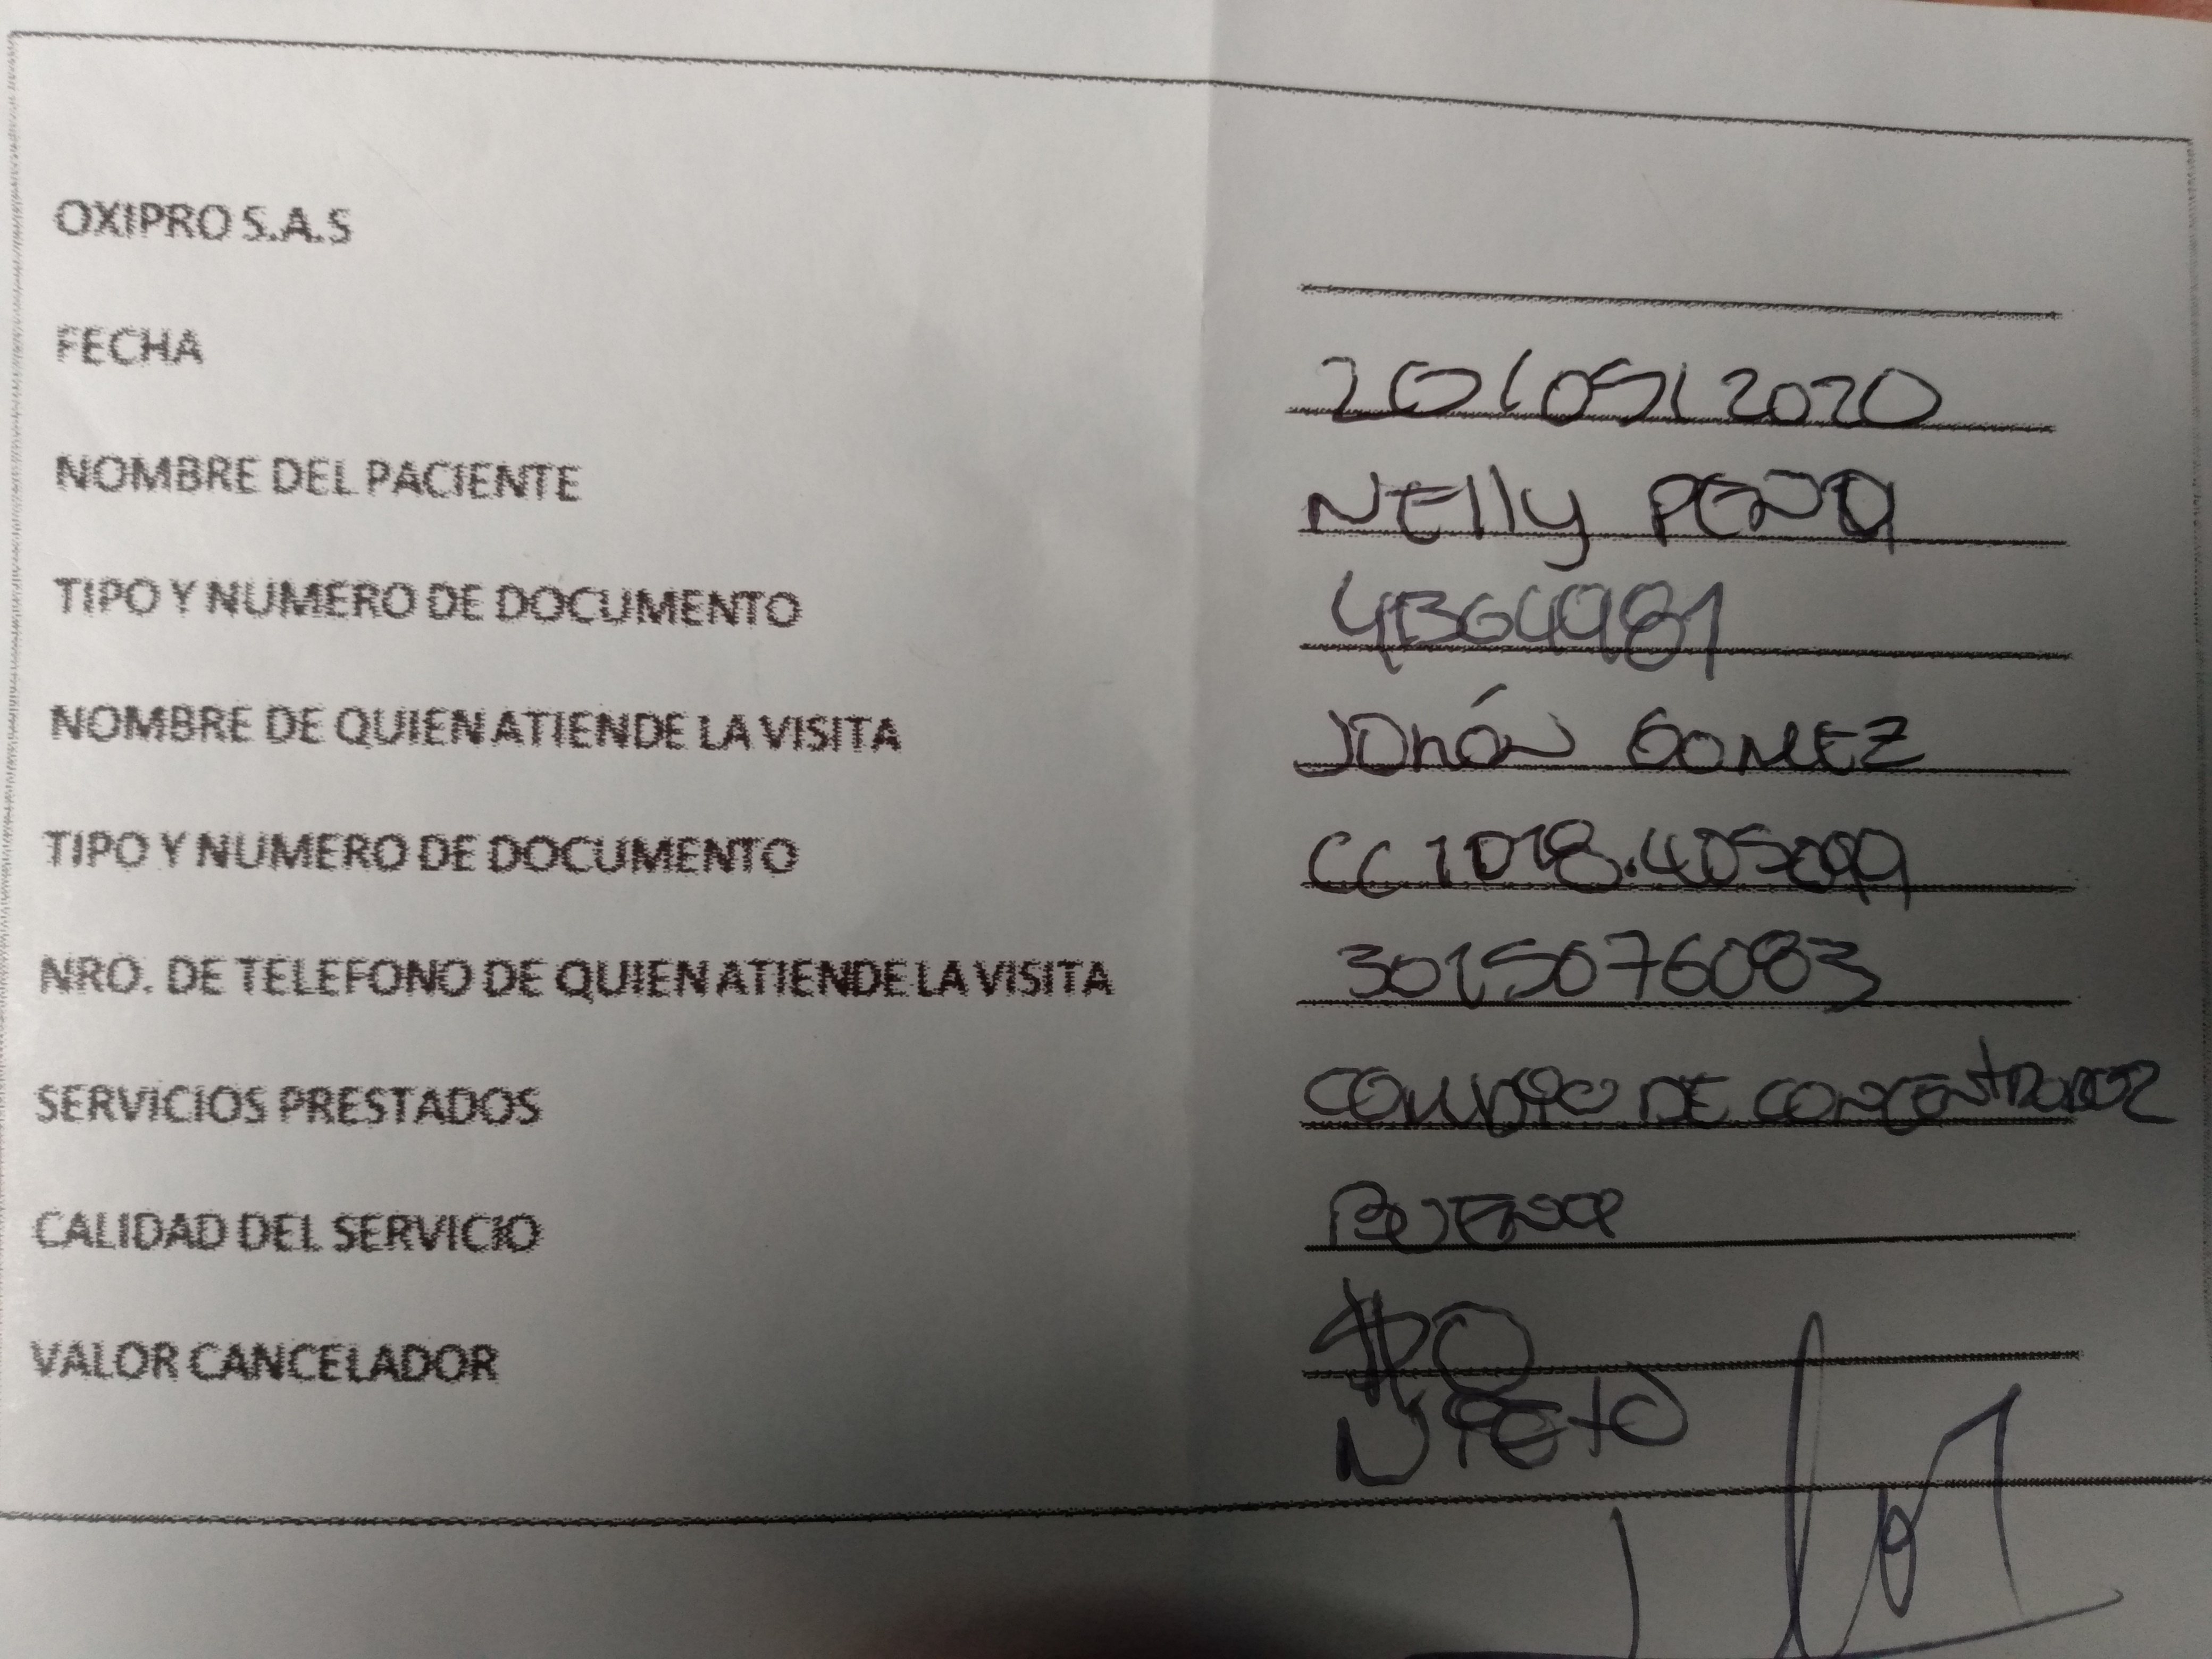 OXIPRO S.A.S
FECHA 20/05/2020
NOMBRE DEL PACIENTE NElly PEÑA
TIPO Y NUMERO DE DOCUMENTO 41364981
NOMBRE DE QUIEN ATIENDE LA VISITA JOHÁN GOMEZ
TIPO Y NUMERO DE DOCUMENTO CC 1018.405099
NRO. DE TELEFONO DE QUIEN ATIENDE LA VISITA 3015076083
SERVICIOS PRESTADOS CAMBIO DE CONCENTRADOR
CALIDAD DEL SERVICIO BUENA
VALOR CANCELADOR $0
NIETO